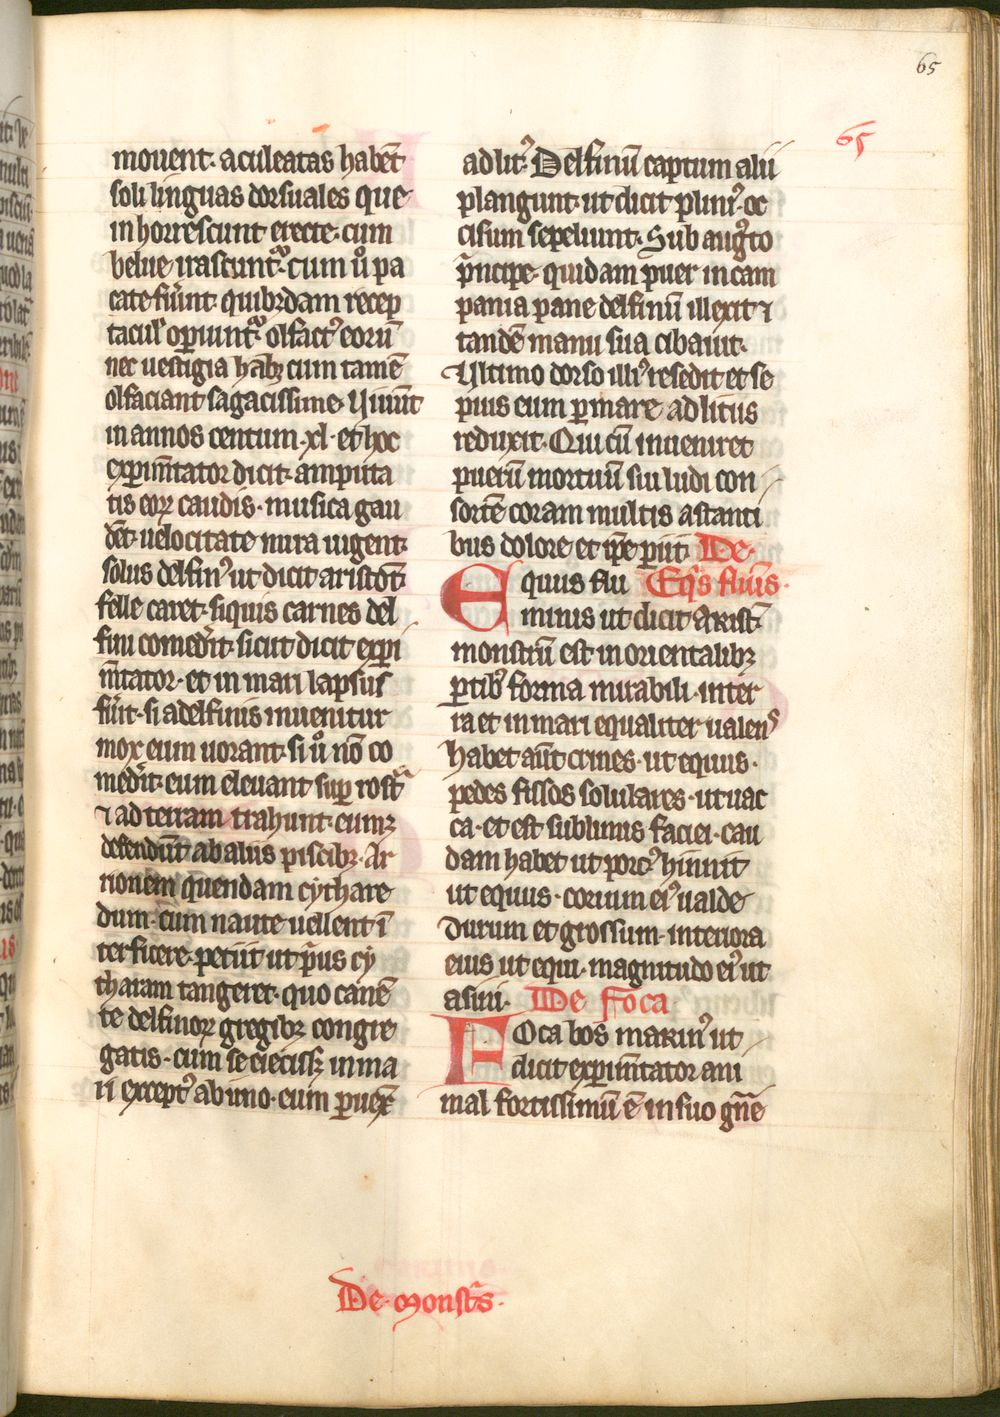 65
65
mouent· aculeatas habēt
soli linguas dorsuales que
inhorrescunt erecte· cum
belue irascunt᷑· cum u̾o pa
cate fu̾int· quibꝫdam recep
tacul' oꝑiunt᷑· olfactꝰ eorū
nec uestigia hn̄t cum tamē
olfaciant sagacissime· Uiuūt
in annos centum ·xl· et hoc
exꝑim̄tator dicit· amputa
tis eoꝝ caudis· musica gau
dēt· uelocitate mira uigent·
solus delfinꝰ ut dicit aristot̄
felle caret· siquis carnes del
fini comed̾it· sicut dicit exꝑi
m̄tator· et in mari lapsus
fu̾it· si a delfinis inuenitur
mox eum uorant· si u̾o nō co
med̾it· eum eleuant suꝑ rostͣ
⁊ ad terram trahunt· eumꝫ
defendūt ab aliis piscibꝫ· Ar
rionem quendam cythare
dum· cum naute uellent ī
terficere· petiit ut p̄us cy
tharam tangeret· quo canē
te delfinoꝝ gregibꝫ congre
gatis· cum se eiecissꝫ in ma
ri exceptꝰ ab uno· eum ꝑuex̄
ad litꝰ· Delfinū captum alii
plangunt ut dicit pliniꝰ· oc
cisum sepeliunt· Sub augꝰto
p̄ncipe· quidam puer in cam
pania pane delfinū illexit ⁊
tandē manu sua cibauit·
Ultimo dorso illiꝰ resedit et se
pius eum ꝑ mare ad litus
reduxit· Qui cū inueniret
puerū mortuū sui ludi con
sortē coram multis astanti
bus dolore et ip̄e ꝑiit· De·
Equus flu Eqͥs fluīs·
minis ut dicit Arist̄
monstrū est in orientalibꝫ
ꝑtibꝰ forma mirabili· in ter
ra et in mari equaliter ualens
habet aūt crines· ut equus·
pedes fissos solulares· ut uac
ca· et est sublimis faciei· cau
dam habet ut porcꝰ hinnit
ut equus· corium eiꝰ ualde
durum et grossum· interiora
eius ut equi· magnitudo eiꝰ ut
asini· De foca
FOca bos marinꝰ ut
dicit exꝑim̄tator ani
mal fortissimū ē in suo gn̄e
De· monstͥs·